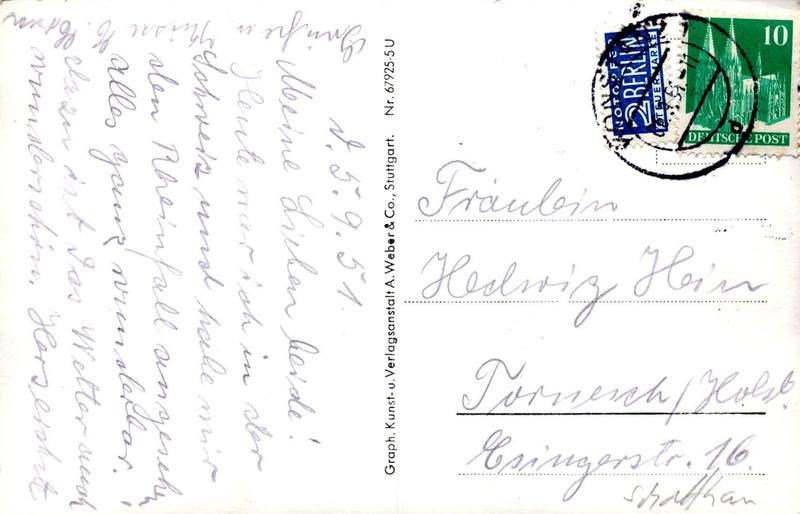 d. 5.9.51.
Meine Lieben beide!
Heute war ich in der
Schweiz und habe mir
den Rheinfall angesehen
alles ganz wunderbar!
dazu ist das Wetter auch
wunderschön. Herzlichst
Graph. Kunst- u. Verlagsanstalt A. Weber & Co., Stuttgart. Nr. 67925-5 U
NOTOPFER
2 BERLIN
STEUERMARKE
10
DEUTSCHE POST
Fräulein
Hedwig Hein
Tornesch/Holst.
Esingerstr. 16.